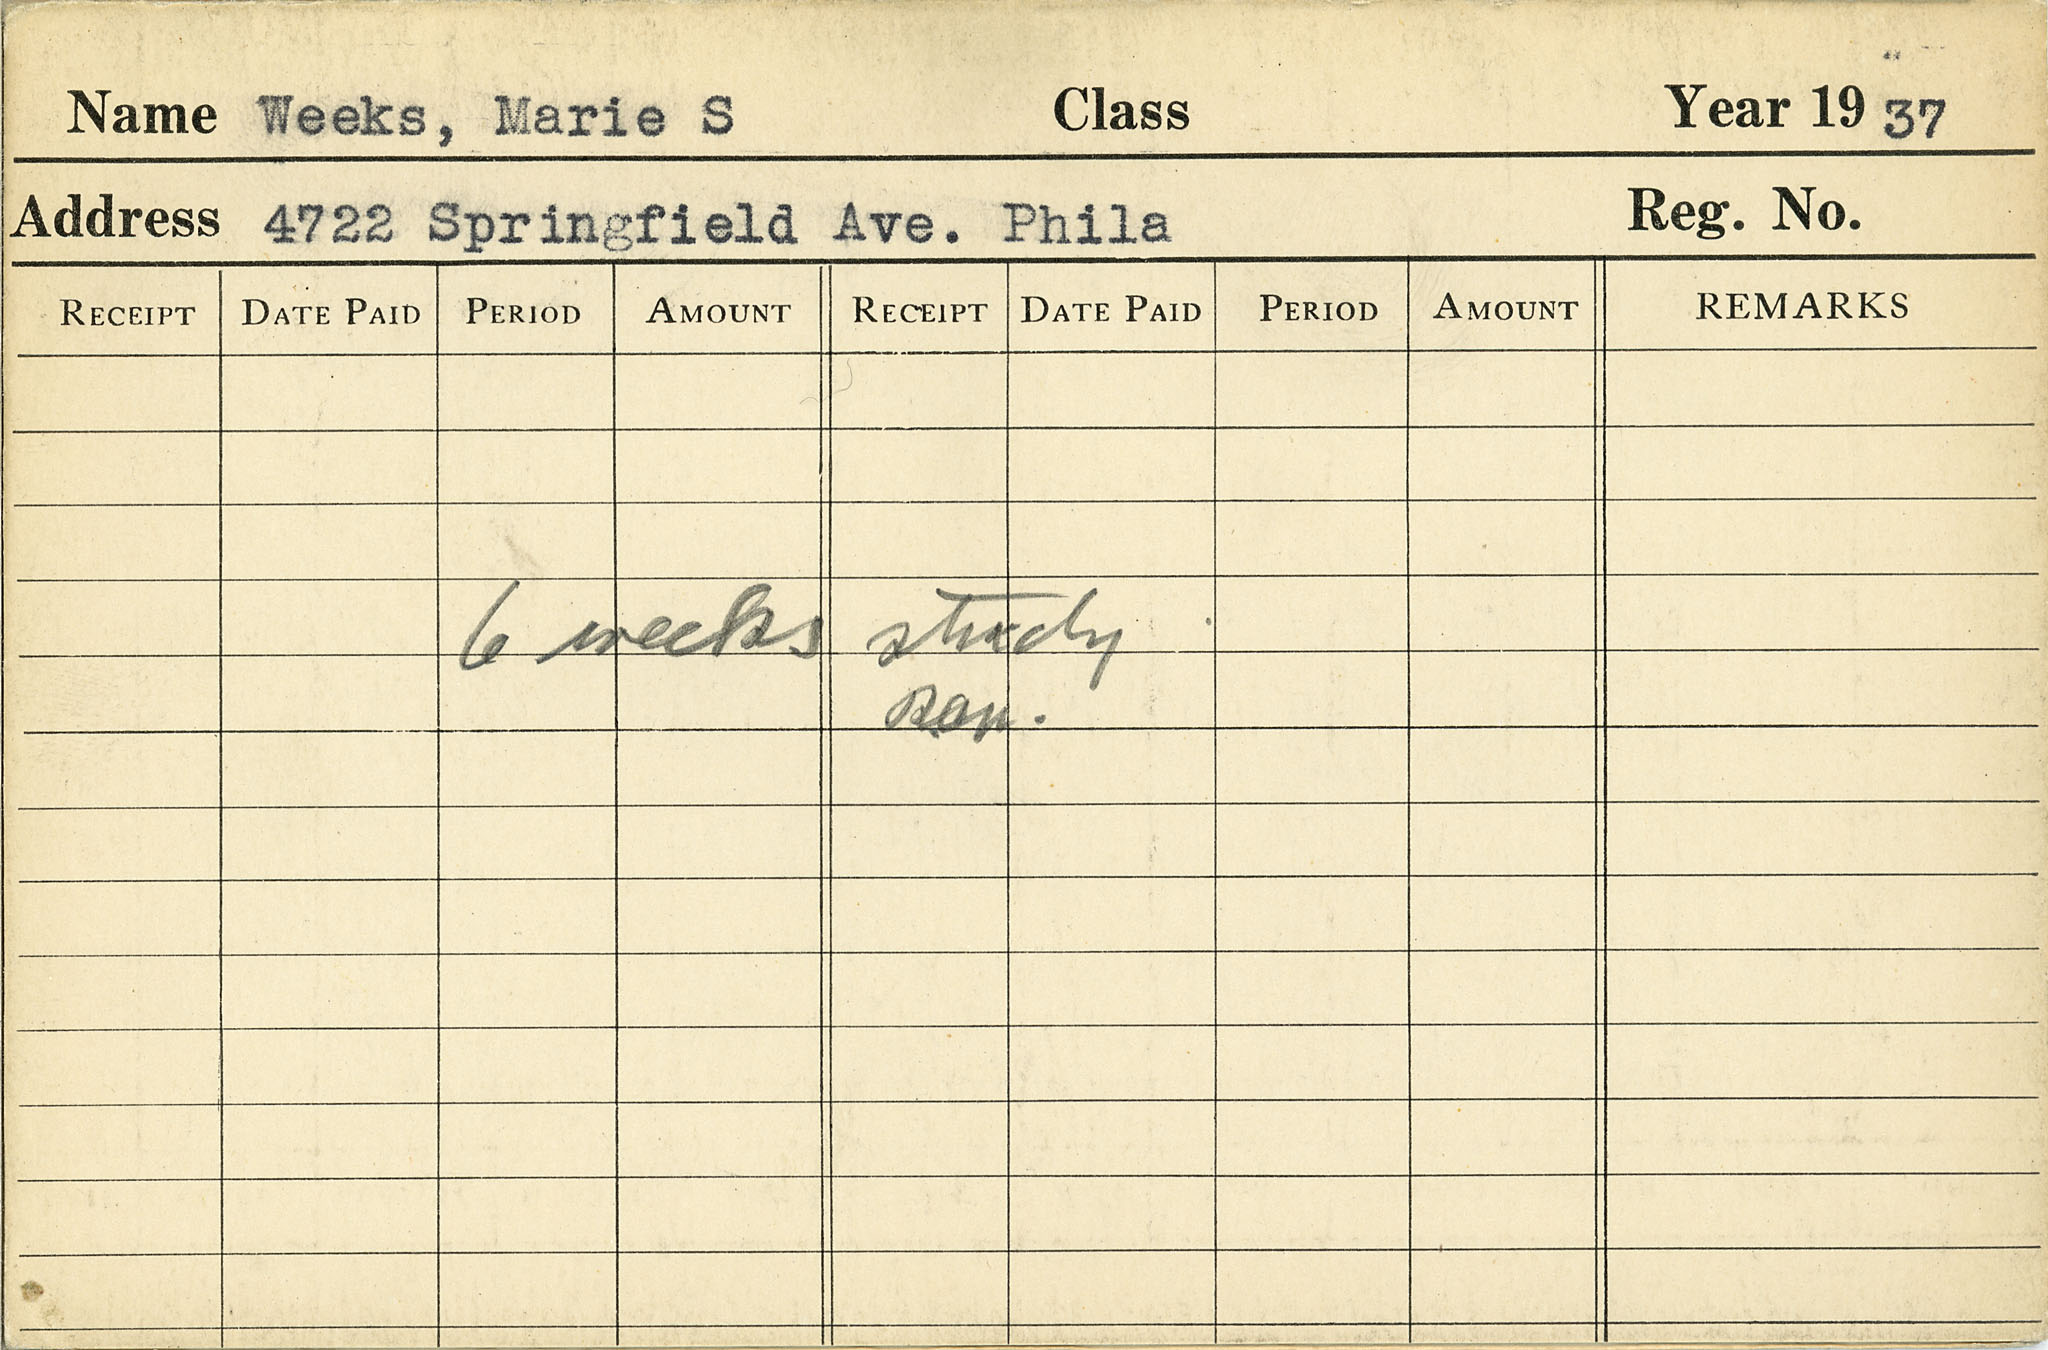 Name Weeks, Marie S Class Year 19 37
Address 4722 Springfield Ave. Phila Reg. No.
RECEIPT DATE PAID PERIOD AMOUNT RECEIPT DATE PAID PERIOD AMOUNT REMARKS
6 weeks study